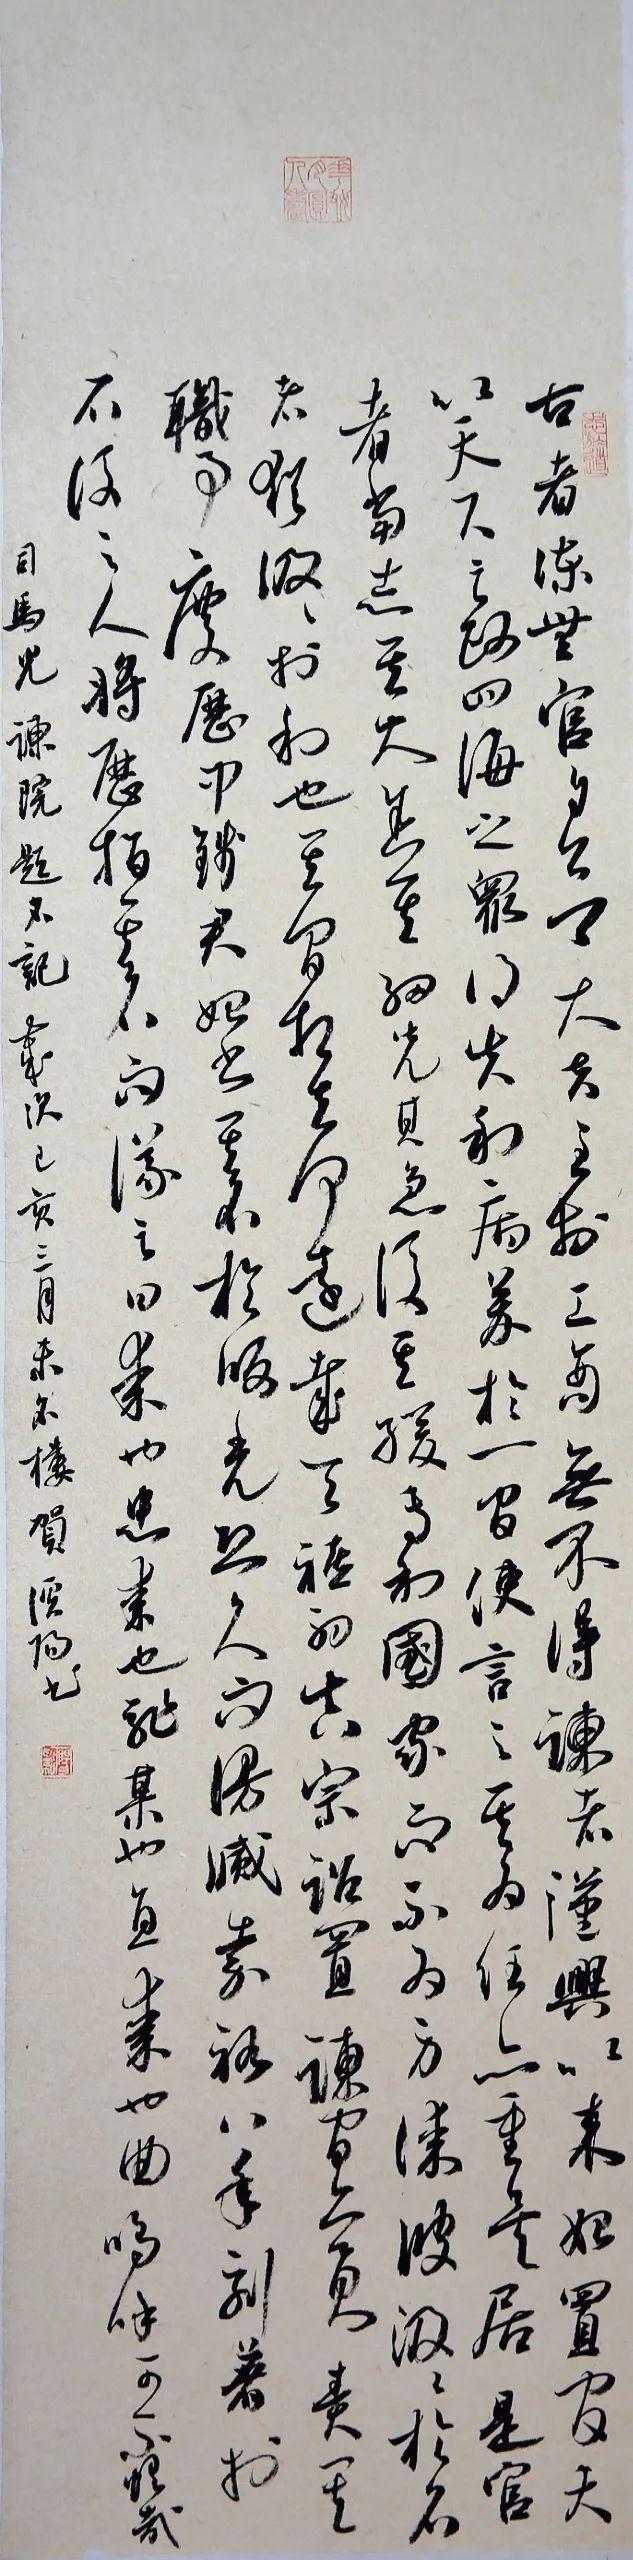 古者諫無官自公卿大夫至於工商無不得諫者漢興以來始置官夫
以天下之政四海之眾得失利病萃於一官使言之其為任亦重矣居是官
者當志其大舍其細先其急後其緩專利國家而不為身謀彼汲汲於名
者猶汲汲於利也其間相去何遠哉天禧初真宗詔置諫官六員責其
職事慶歷中錢君始書其名於版光恐久而漫滅嘉祐八年刻著於
石後之人將歷指其名而議之曰某也忠某也詐某也直某也曲嗚呼可不懼哉
司馬光諫院題名記 歲次己亥三月未名樓賀